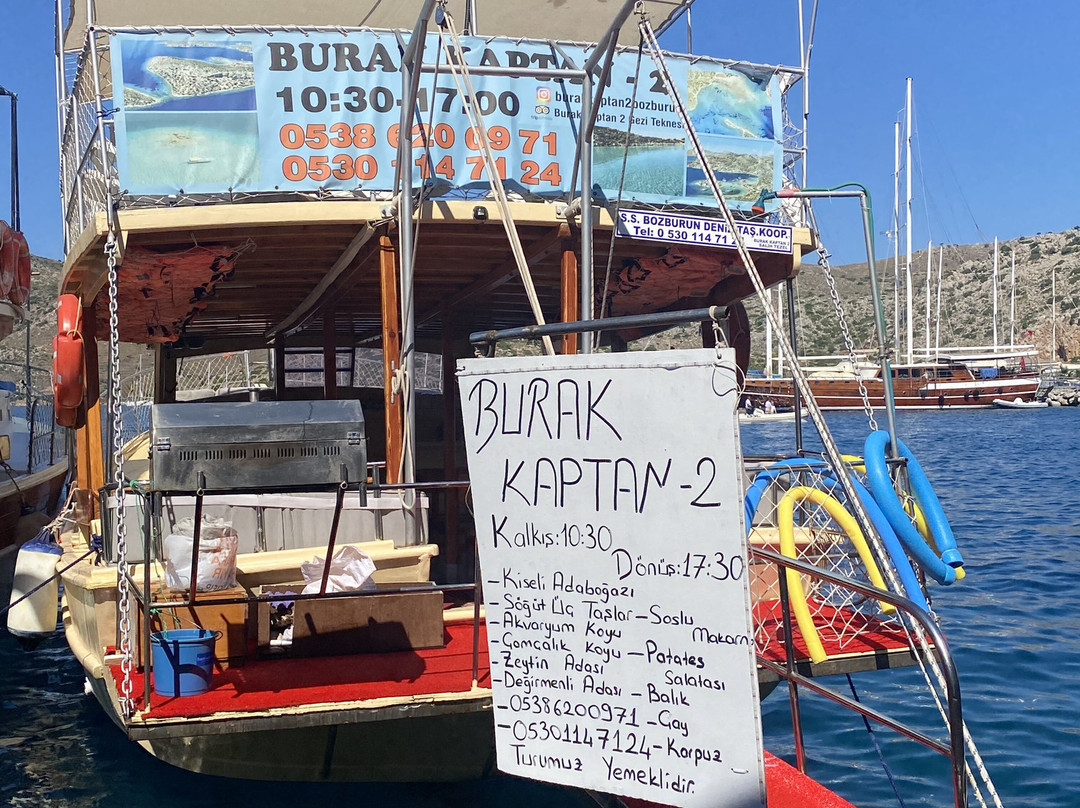 BURAK KAPTAN - 2
10:30-17:00
burakkaptan2bozburun
Burak Kaptan 2 Gezi Teknesi
0538 620 09 71
0530 114 71 24
S.S. BOZBURUN DENİZ TAŞ.KOOP.
Tel: 0 530 114 71
BURAK KAPTAN 2
SALİH TEZEL
BURAK
KAPTAN-2
Kalkış:10:30
Dönüş:17:30
-Kiseli Adaboğazı
-Söğüt Üç Taşlar-Soslu
Makarna
-Akvaryum Koyu
-Çamçalık Koyu -Patates
Salatası
-Zeytin Adası
-Değirmenli Adası -Balık
-05386200971 -Çay
-05301147124-Karpuz
Turumuz Yemeklidir.